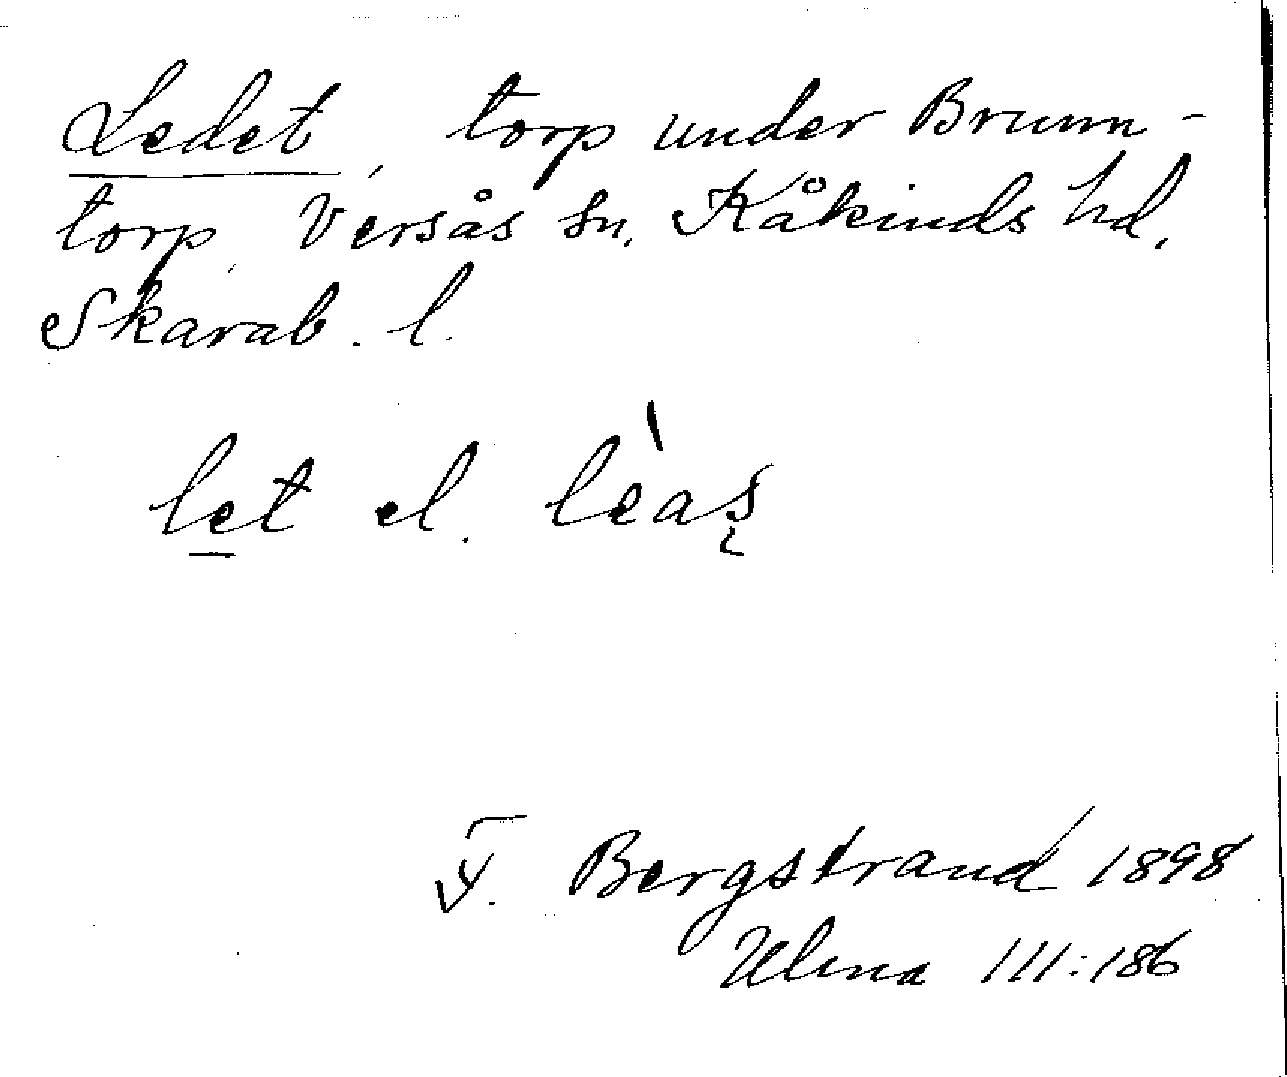 Ledet, torp under Brum-
torp, Versås sn, Kåkinds hd,
Skarab. l.
let el. lèas
T. Bergstrand 1898
Ulma III:186